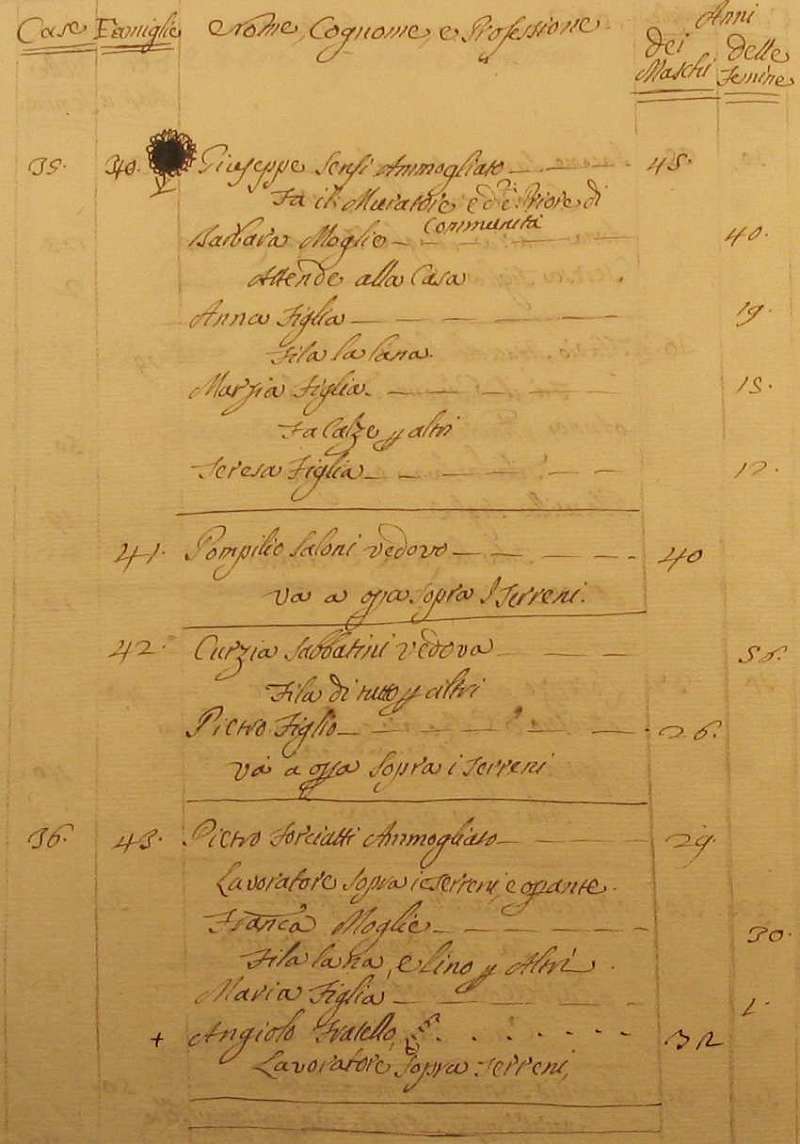 Case Famiglie Nome, Cognome, e Professione Anni
dei Maschi delle Femine
35. 40. Giuseppe Sensi Ammogliato 45.
Fa il Muratore ed è Priore di
Communità
Barbara Moglie 40.
Attende alla Casa
Anna Figlia 19.
Fila la lana.
Marzia Figlia 15.
Fa Calze p altri
Teresa Figlia 12.
41. Pompilio Saloni vedovo 40
va a opa sopra I Terreni.
42. Curzia Sabbatini vedova 56.
Fila di tutto p altri
Pietro Figlio 26.
va a opa sopra i Terreni
36. 43. Pietro Ammogliato 29.
Lavoratore sopra i Terreni, e opante.
Franca Moglie 30.
Fila lana, e lino p Altri.
Maria Figlia 1.
+ Angiolo Fratello, 32
Lavoratore sopra Terreni,